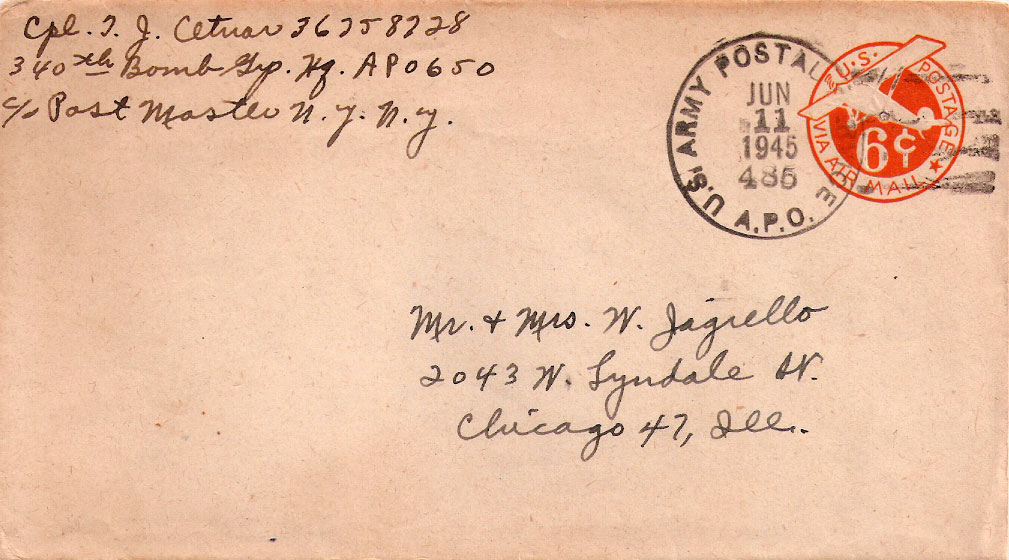 Cpl. T. J. Cetnar 36758728
340th Bomb Grp. Hq. APO650
c/o Post Master N. Y. N. Y.
U.S. ARMY POSTAL
A.P.O.
JUN
11
1945
486
U.S. POSTAGE
6¢
VIA AIR MAIL
Mr. + Mrs. W. Jagiello
2043 W. Lyndale St.
Chicago 47, Ill.